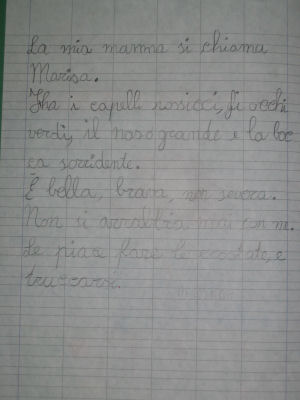 La mia mamma si chiama
Marisa.
Ha i capelli rossicci, gli occhi
verdi, il naso grande e la boc
ca sorridente.
È bella, brava, non severa.
Non si arrabbia mai con me.
Le piace fare le crostate, e
truccarsi.